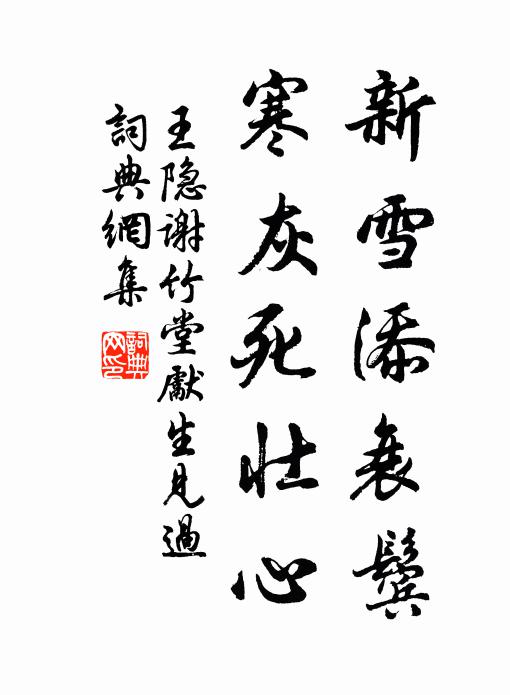 新雪添衰鬓
寒灰死壮心
王隐谢竹堂獻生見過
詞典網集
詞典网印